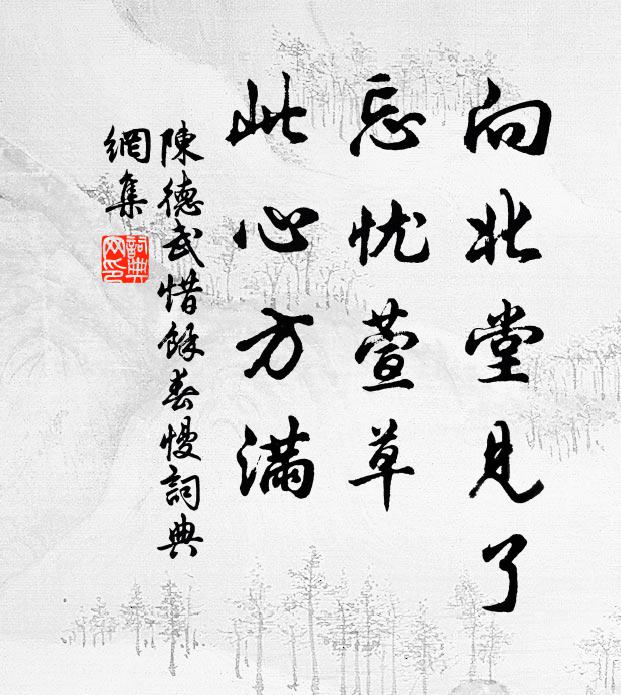 向北堂見了
忘忧萱草
此心方满
陳德武惜餘春慢詞典
網集
詞典
网印